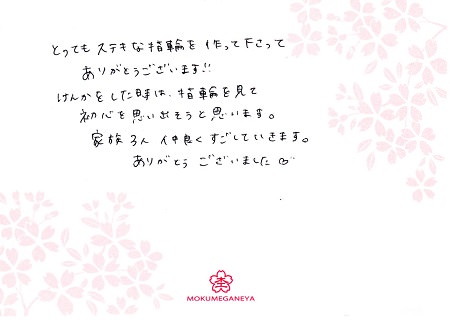 とってもステキな指輪を作って下さって
ありがとうございます!!
けんかをした時は、指輪を見て
初心を思い出そうと思います。
家族3人 仲良くすごしていきます。
ありがとう ございました♡
MOKUMEGANEYA